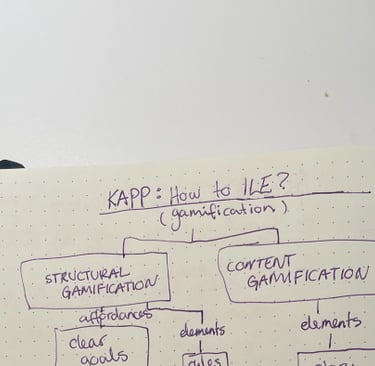 KAPP: How to ILE?
(gamification)
STRUCTURAL
GAMIFICATION
CONTENT
GAMIFICATION
affordances
elements
elements
clear
goals
rules